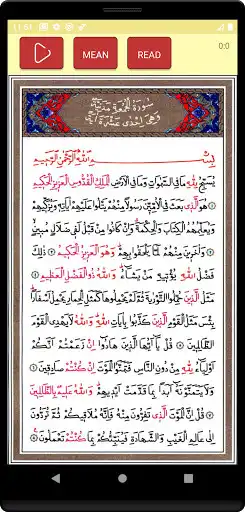 11:51
MEAN
READ
0:0
سُورَةُ الْجُمُعَةِ مَدَنِيَّةٌ
وَهِيَ اِحْدٰى عَشْرَةَ اٰيَةً
بِسْمِ اللّٰهِ الرَّحْمٰنِ الرَّحِيمِ
يُسَبِّحُ لِلّٰهِ مَا فِي السَّمٰوَاتِ وَمَا فِي الْاَرْضِ الْمَلِكِ الْقُدُّوسِ الْعَزِيزِ الْحَكِيمِ
هُوَ الَّذِي بَعَثَ فِي الْاُمِّيّٖنَ رَسُولًا مِنْهُمْ يَتْلُوا عَلَيْهِمْ اٰيَاتِهٖ وَيُزَكّٖيهِمْ
وَيُعَلِّمُهُمُ الْكِتَابَ وَالْحِكْمَةَ وَاِنْ كَانُوا مِنْ قَبْلُ لَفِي ضَلَالٍ مُبِينٍ
وَاٰخَرِينَ مِنْهُمْ لَمَّا يَلْحَقُوا بِهِمْ وَهُوَ الْعَزِيزُ الْحَكِيمُ ذٰلِكَ
فَضْلُ اللّٰهِ يُؤْتِيهِ مَنْ يَشَاءُ وَاللّٰهُ ذُو الْفَضْلِ الْعَظِيمِ
مَثَلُ الَّذِينَ حُمِّلُوا التَّوْرٰيةَ ثُمَّ لَمْ يَحْمِلُوهَا كَمَثَلِ الْحِمَارِ يَحْمِلُ اَسْفَارًا
بِئْسَ مَثَلُ الْقَوْمِ الَّذِينَ كَذَّبُوا بِاٰيَاتِ اللّٰهِ وَاللّٰهُ لَا يَهْدِي الْقَوْمَ
الظَّالِمِينَ قُلْ يَا اَيُّهَا الَّذِينَ هَادُوا اِنْ زَعَمْتُمْ اَنَّكُمْ
اَوْلِيَاءُ لِلّٰهِ مِنْ دُونِ النَّاسِ فَتَمَنَّوُا الْمَوْتَ اِنْ كُنْتُمْ صَادِقِينَ
وَلَا يَتَمَنَّوْنَهُ اَبَدًا بِمَا قَدَّمَتْ اَيْدِيهِمْ وَاللّٰهُ عَلِيمٌ بِالظَّالِمِينَ
قُلْ اِنَّ الْمَوْتَ الَّذِي تَفِرُّونَ مِنْهُ فَاِنَّهُ مُلَاقِيكُمْ ثُمَّ تُرَدُّونَ
اِلٰى عَالِمِ الْغَيْبِ وَالشَّهَادَةِ فَيُنَبِّئُكُمْ بِمَا كُنْتُمْ تَعْمَلُونَ